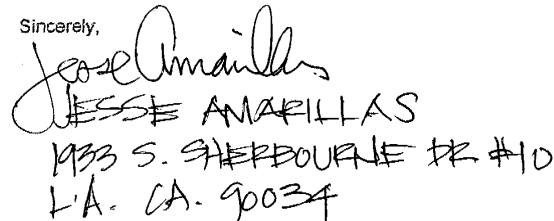 Sincerely,
Jesse Amarillas
JESSE AMARILLAS
1933 S. SHERBOURNE DR #10
L.A. CA. 90034